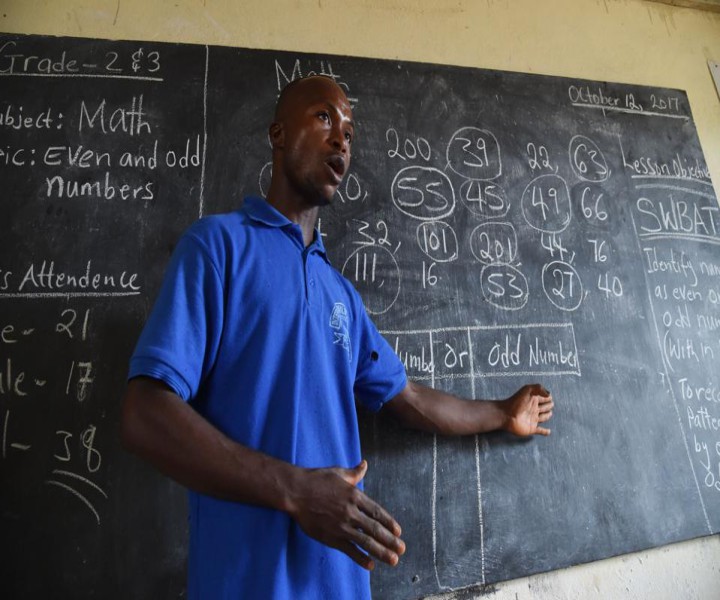 Grade-2 &3
Subject: Math
Topic: Even and odd
numbers
Attendence
21
17
38
Math
October 12, 2017
200 39 22, 63
55 45, 49 66
32, 101 201 44, 76
111, 16 53 27, 40
or odd Number
Lesson Objective
SWBAT
Identify
as even
odd
(with in
To
by